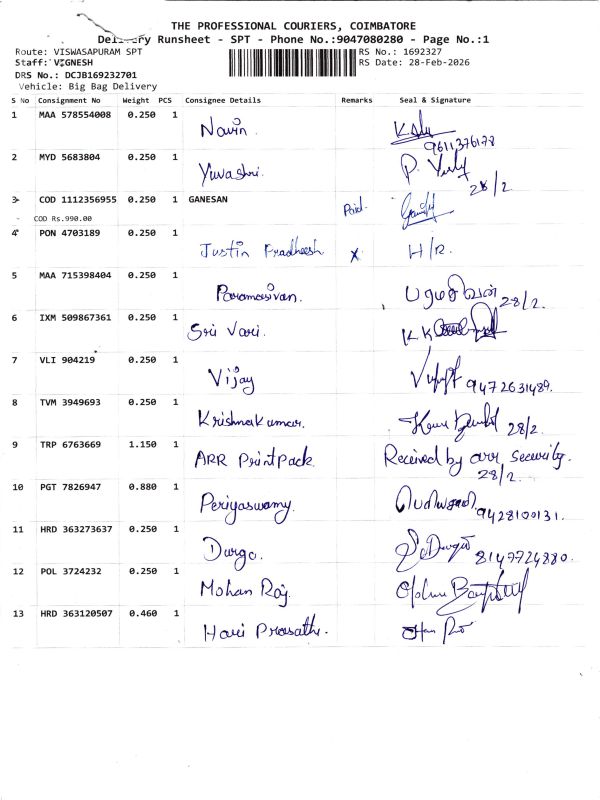 THE PROFESSIONAL COURIERS, COIMBATORE
Delivery Runsheet - SPT - Phone No.:9047080280 - Page No.:1
Route: VISWASAPURAM SPT RS No.: 1692327
Staff: VIGNESH RS Date: 28-Feb-2026
DRS No.: DCJB169232701
Vehicle: Big Bag Delivery
S No Consignment No Weight PCS Consignee Details Remarks Seal & Signature
1 MAA 578554008 0.250 1 Navin
9611376178
2 MYD 5683804 0.250 1 Yuvashri. 28/2
3 COD 1112356955 0.250 1 GANESAN Paid
COD Rs.990.00
4 PON 4703189 0.250 1 Justin Pradheesh x H/R.
5 MAA 715398404 0.250 1 Paramasivan. பரமசிவன் 28/2.
6 IXM 509867361 0.250 1 Sri Vari.
7 VLI 904219 0.250 1 Vijay 9472631489.
8 TVM 3949693 0.250 1 Krishnakumar. 28/2
9 TRP 6763669 1.150 1 ARR PrintPack. Received by arr security.
28/2.
10 PGT 7826947 0.880 1 Periyaswamy. 9428100131.
11 HRD 363273637 0.250 1 Durga. 8147724880.
12 POL 3724232 0.250 1 Mohan Raj.
13 HRD 363120507 0.460 1 Hari Prasath.